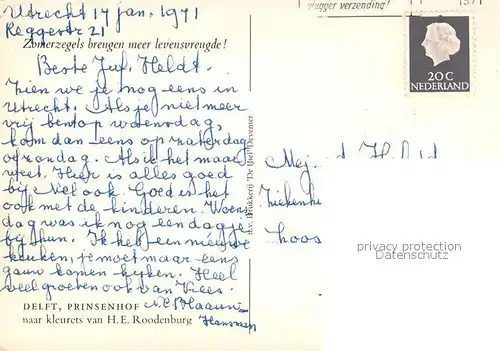 Utrecht 17 jan. 1971
Reggestr 21
Zomerzegels brengen meer levensvreugde!
Beste Juf. Heldt.
Zien we je nog eens in
Utrecht. Als je niet meer
vrij bent op woensdag,
kom dan eens op zaterdag
of zondag. Als ik het maar
weet. Hier is alles goed
bij Nel ook. Goed is het
ook met de kinderen. Woens
dag was ik nog een dagje
bij hun. Ik heb een nieuwe
keuken, je moet maar eens
gauw komen kijken. Heel
veel groeten ook van Kees.
N.C. Blaauw
Hansman
DELFT, PRINSENHOF
naar kleurets van H. E. Roodenburg
n.v. Drukkerij 'De IJsel' Deventer
vlugger verzending!
1971
20 C
NEDERLAND
Mej
Ziekenh
Loos
privacy protection
Datenschutz